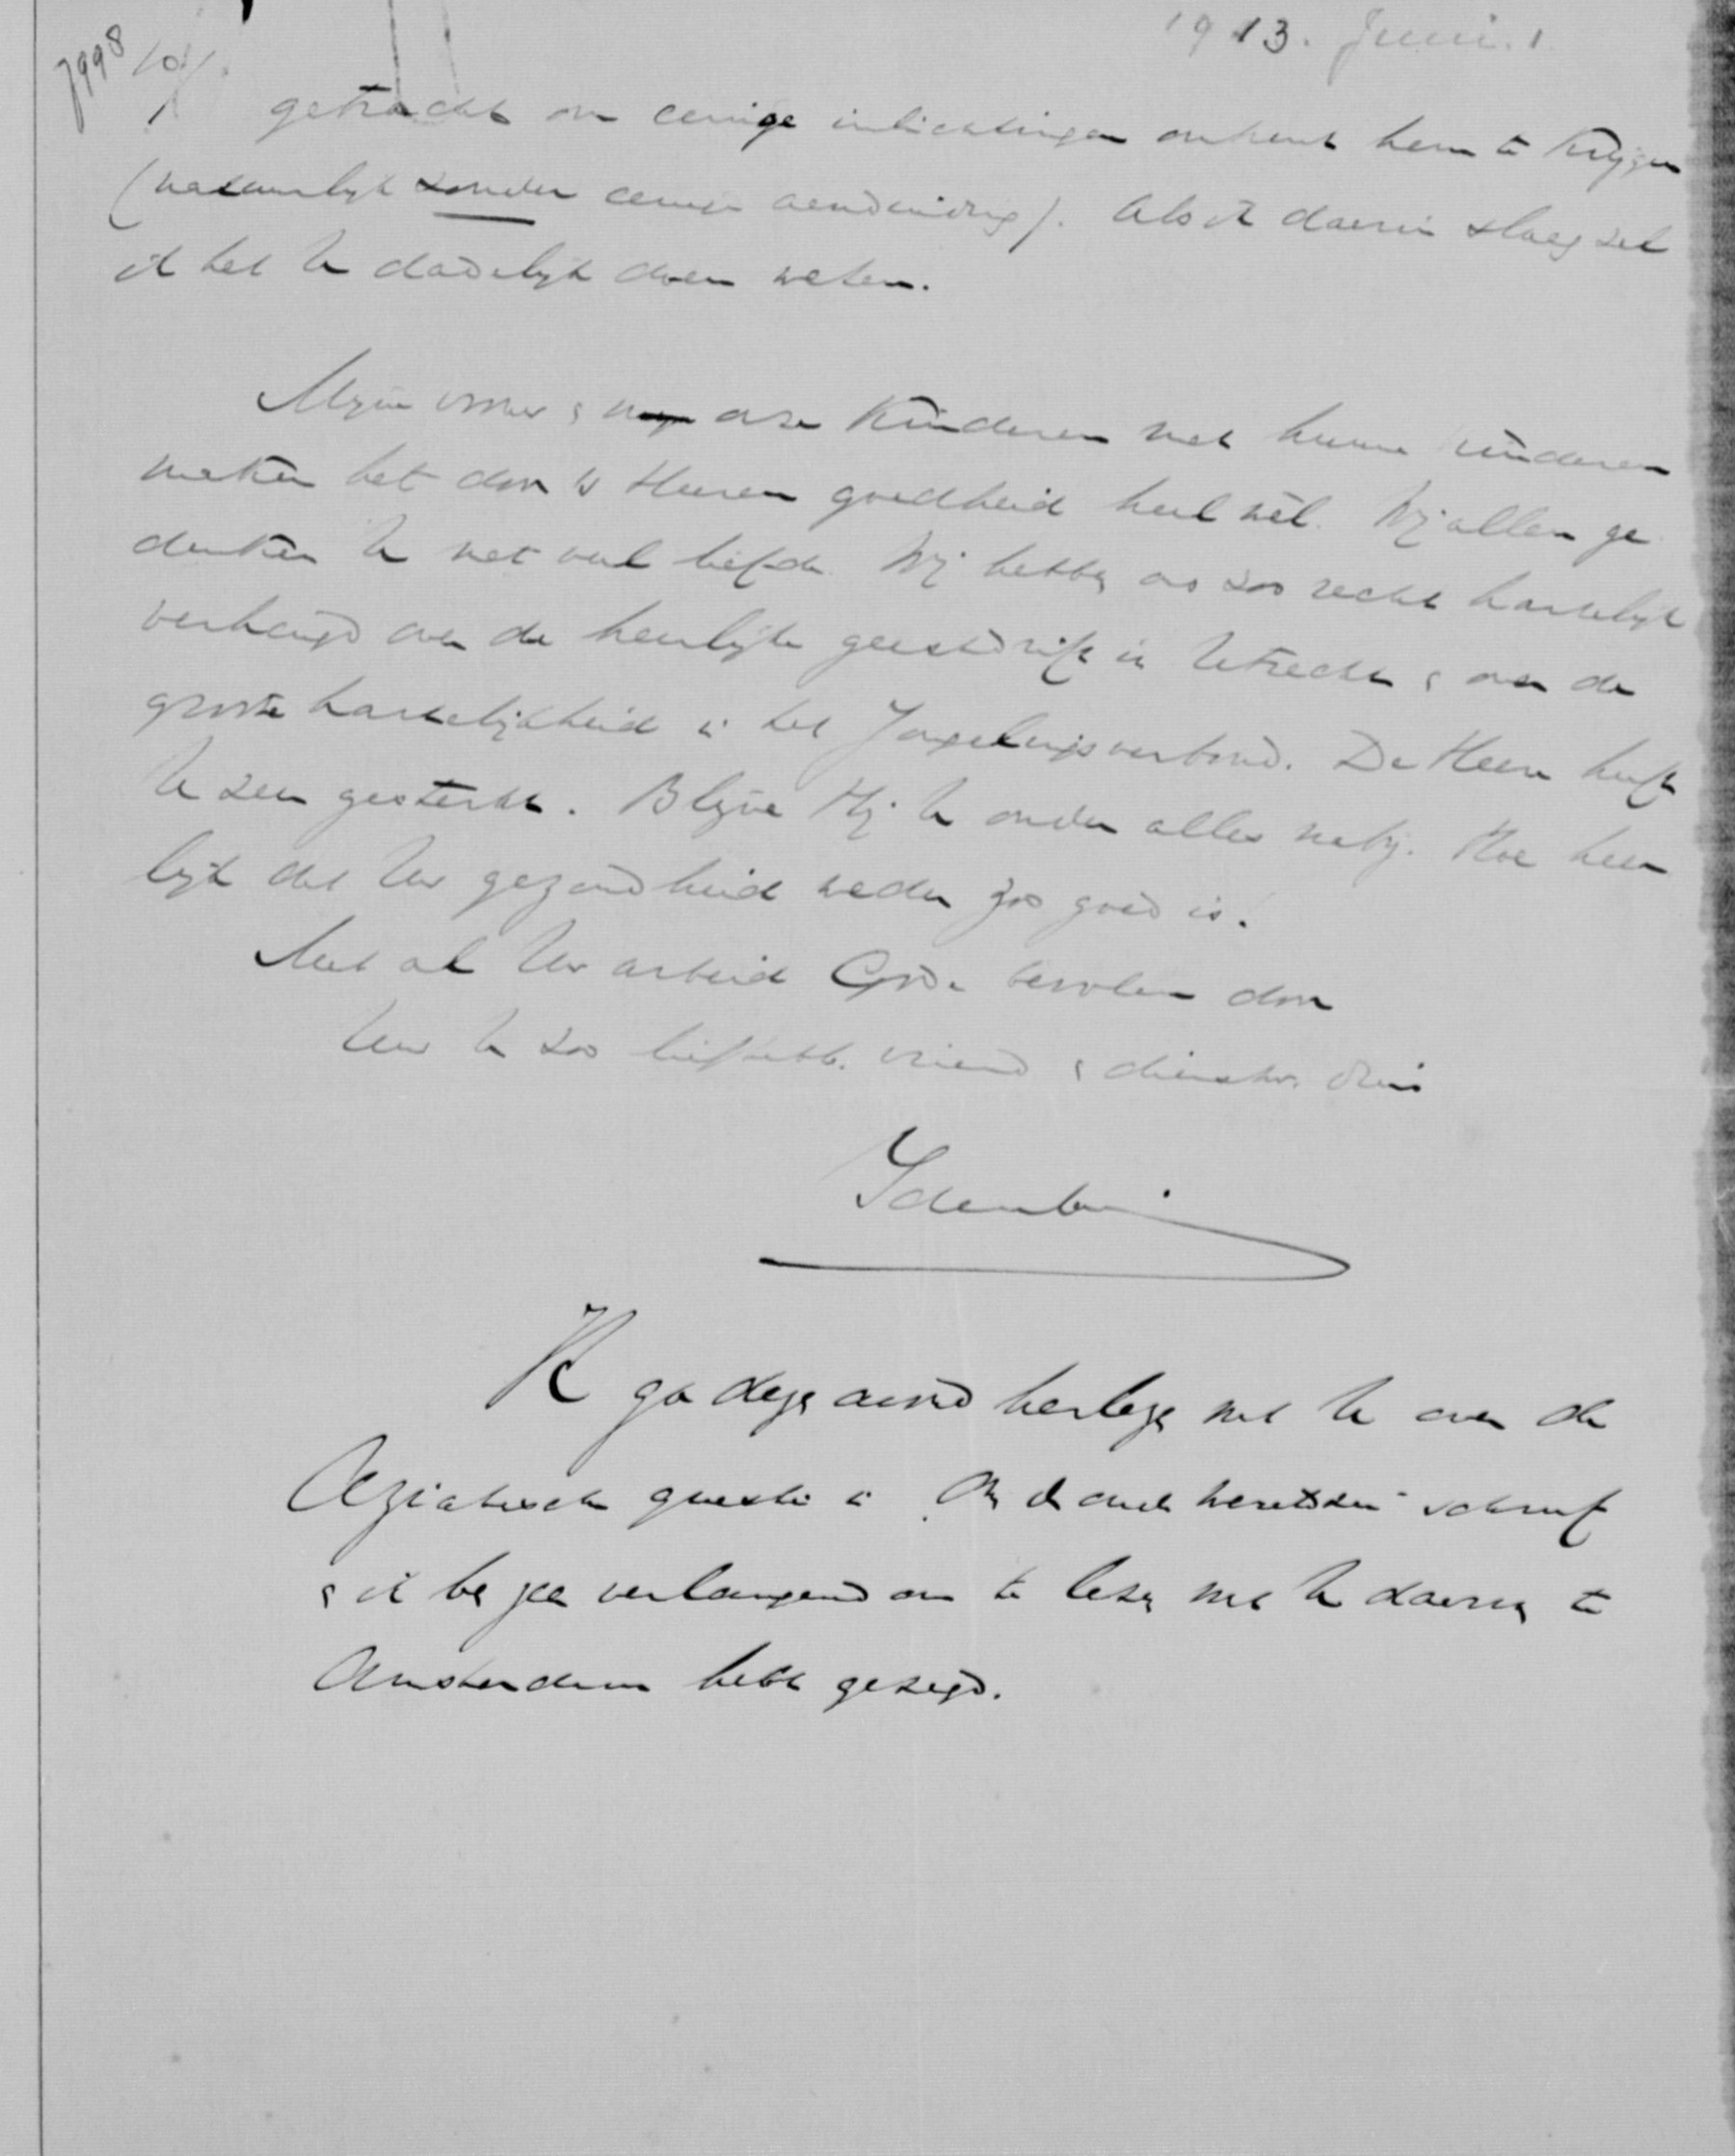 1913. Juni. 1
7998
10/
getracht om eenige inlichtingen omtrent hem te krijgen
(natuurlijk zonder eenige aanduiding). Als ik daarin slaag zal
ik het U dadelijk doen weten.
Mijne vrouw & onze kinderen met hunne kinderen
maken het door 's Heeren goedheid heel wèl. Wij allen ge
denken U met veel liefde. Wij hebben ons zoo recht hartelijk
verheugd over de heerlijke geestdrift in Utrecht & over de
groote hartelijkheid in het Jongelingsverbond. De Heere heeft
U zeer gesterkt. Blijve Hij U onder alles nabij. Hoe heer
lijk dat Uw gezondheid weder zoo goed is.
Met al Uw arbeid Gode bevolen door
Uw U zoo liefhebb. vriend & dienstw. dnr
Idenburg
Ik ga dezen avond herlezen wat U over de
Aziatische questie in Om de oude wereldzee schreef
& ik ben zeer verlangend om te lezen wat U daarin te
Amsterdam hebt gezegd.